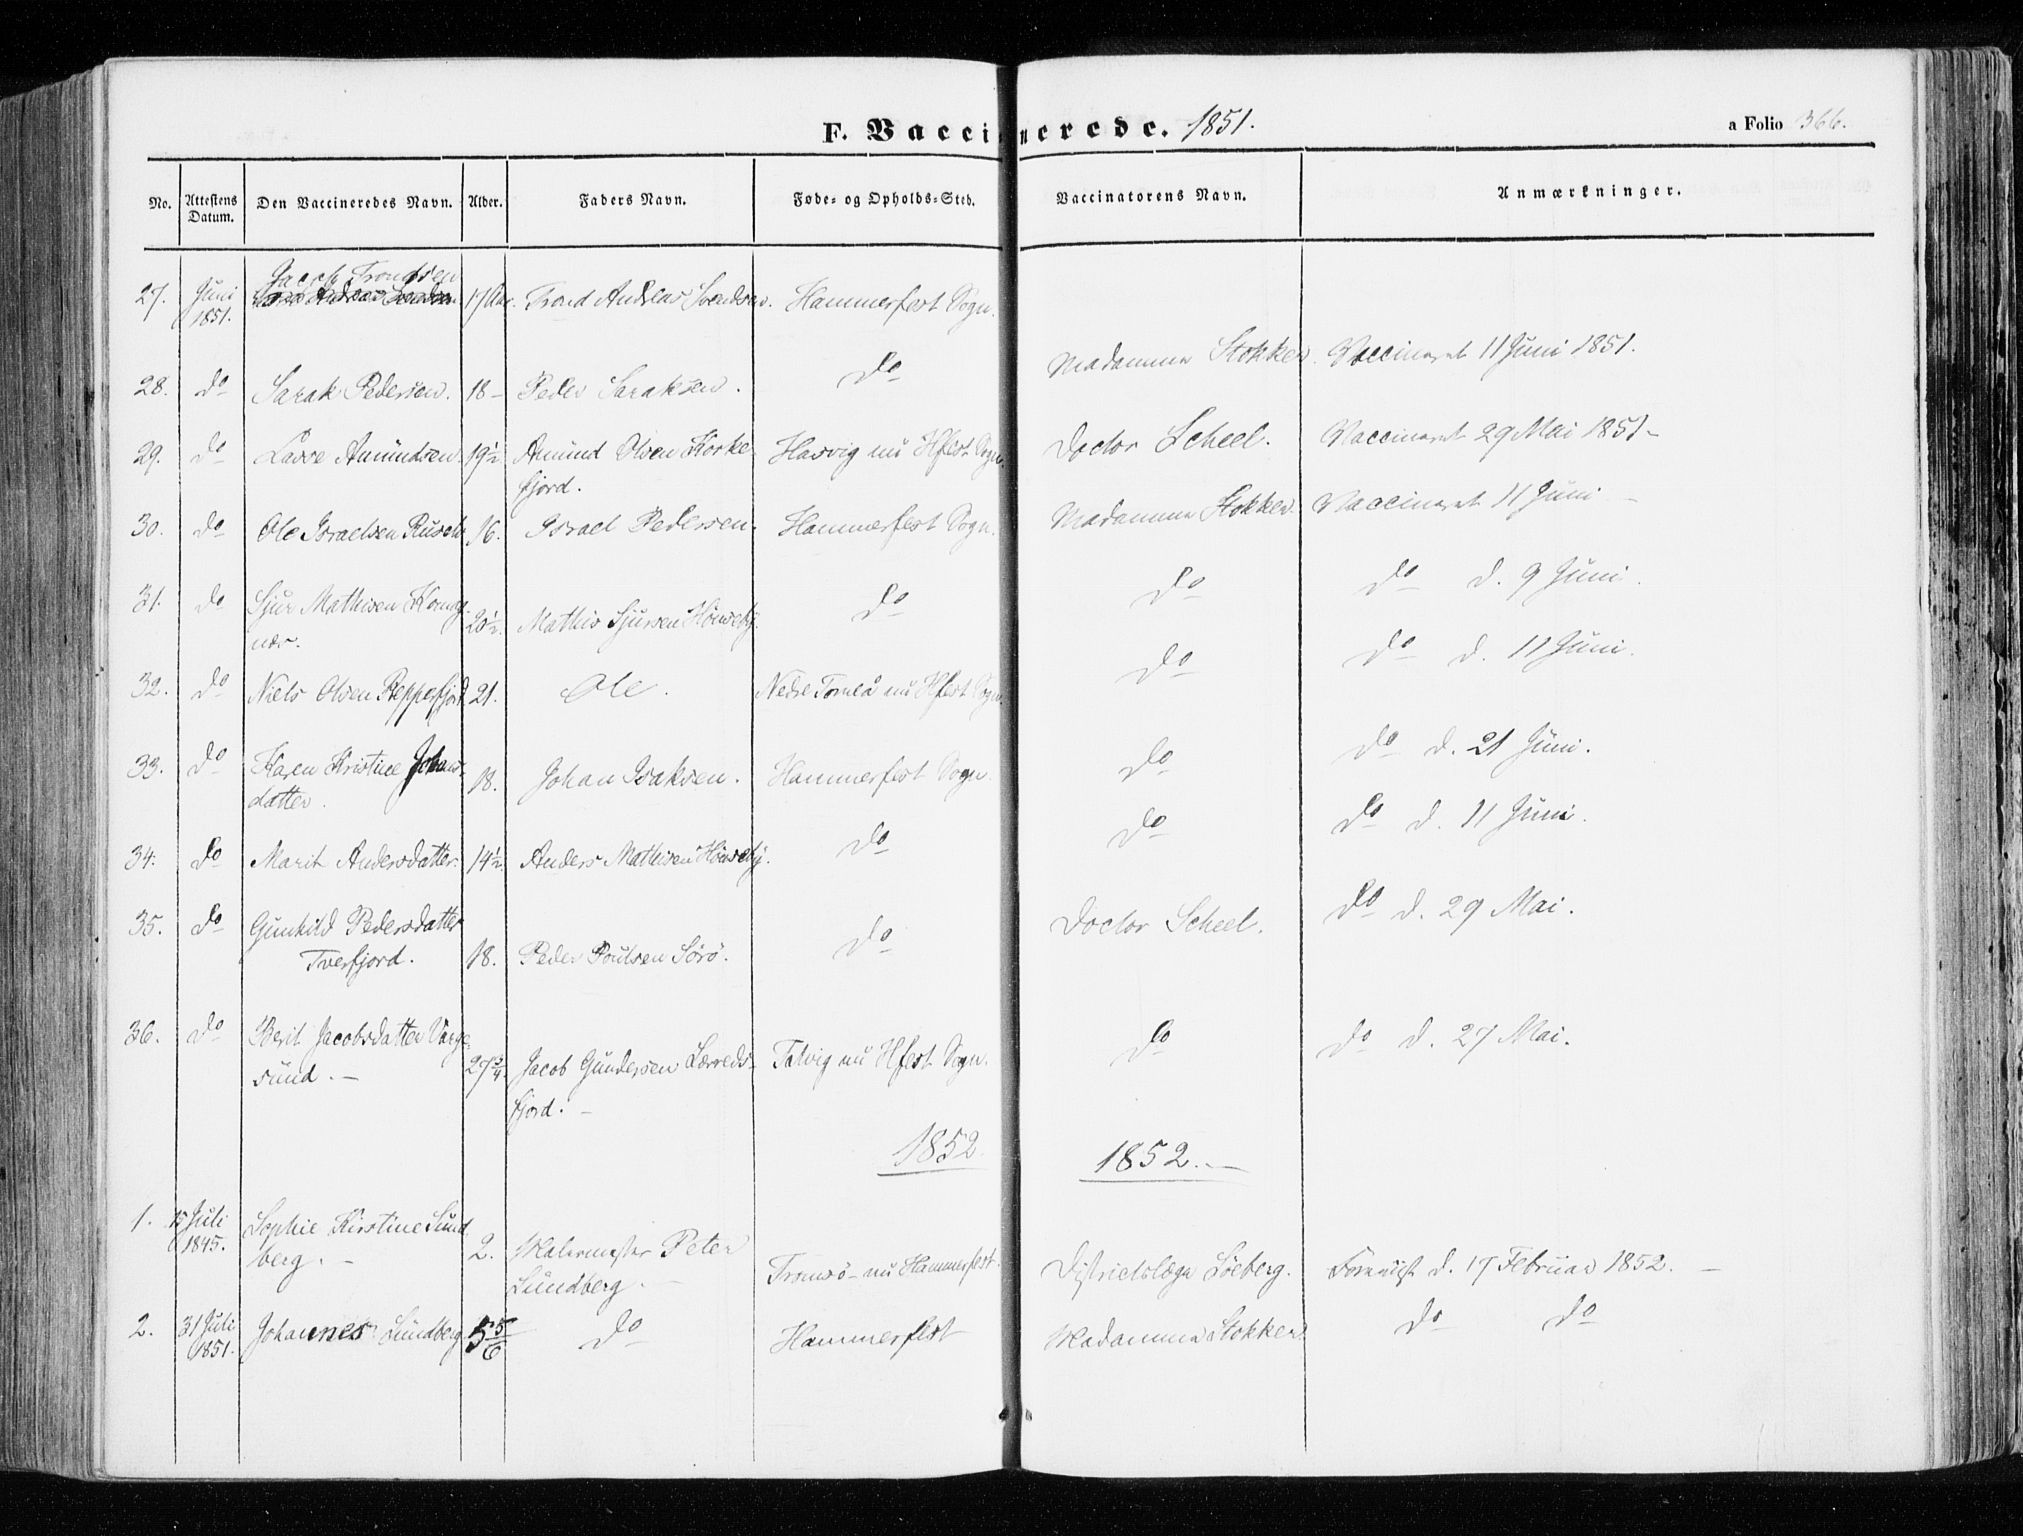 F. Vaccinerede. 1851.
a Folio 366.
No. Attestens Datum. Den Vaccineredes Navn. Alder. Faders Navn. Føde- og Opholds-Sted. Vaccinatorens Navn. Anmærkninger.
Jacob Trondsen
27. Juni 1851. 17 Aar. Trond Andreas Svendsen. Hammerfest Sogn.
Madamme Stokker. Vaccineret 11 Juni 1851.
28. do Sarak Pedersen. 18 – Peder Saraksen. do
Doctor Scheel. Vaccineret 29 Mai 1851 –
29. do Lasse Amundsen 19½ Amund Olsen Korke-
fjord. Hasvig nu Hfest Sogn.
Madamme Stokker. Vaccineret 11 Juni –
30. do Ole Israelsen 16. Israel Pedersen. Hammerfest Sogn.
do do d. 9 Juni.
31. do Sjur Mathisen
nes. 20½. Mathis Sjursen Hønseby. do
do do d. 11 Juni.
32. do Niels Olsen Reppefjord 21. Ole. Nedre Torneå nu Hfest Sogn.
do do d. 21 Juni.
33. do Karen Kristine Johans-
datter. 18. Johan Isaksen. Hammerfest Sogn.
do do d. 11 Juni.
34. do Marit Andersdatter. 14½ Anders Mathisen Hønseby. do
Doctor Scheel. do d. 29 Mai.
35. do Gunhild Pedersdatter
Tverfjord. 18. Peder Poulsen Sørø. do
36. do Berit Jacobsdatter Varge-
sund. – 27¾. Jacob Gundersen
fjord. – Talvig nu Hfest Sogn.
do do d. 27 Mai.
1852. 1852. –
1. 15 Juli 1845. Sophie Kirstine Sund-
berg. – 2. Malermester Peter
Lundberg. – Tromsø – nu Hammerfest. Districtslæge Søeberg. Foreviist d. 17 Februar 1852. –
2. 31 Juli 1851. Johannes Lundberg 5 5/6 do Hammerfest Madamme Stokker. do do